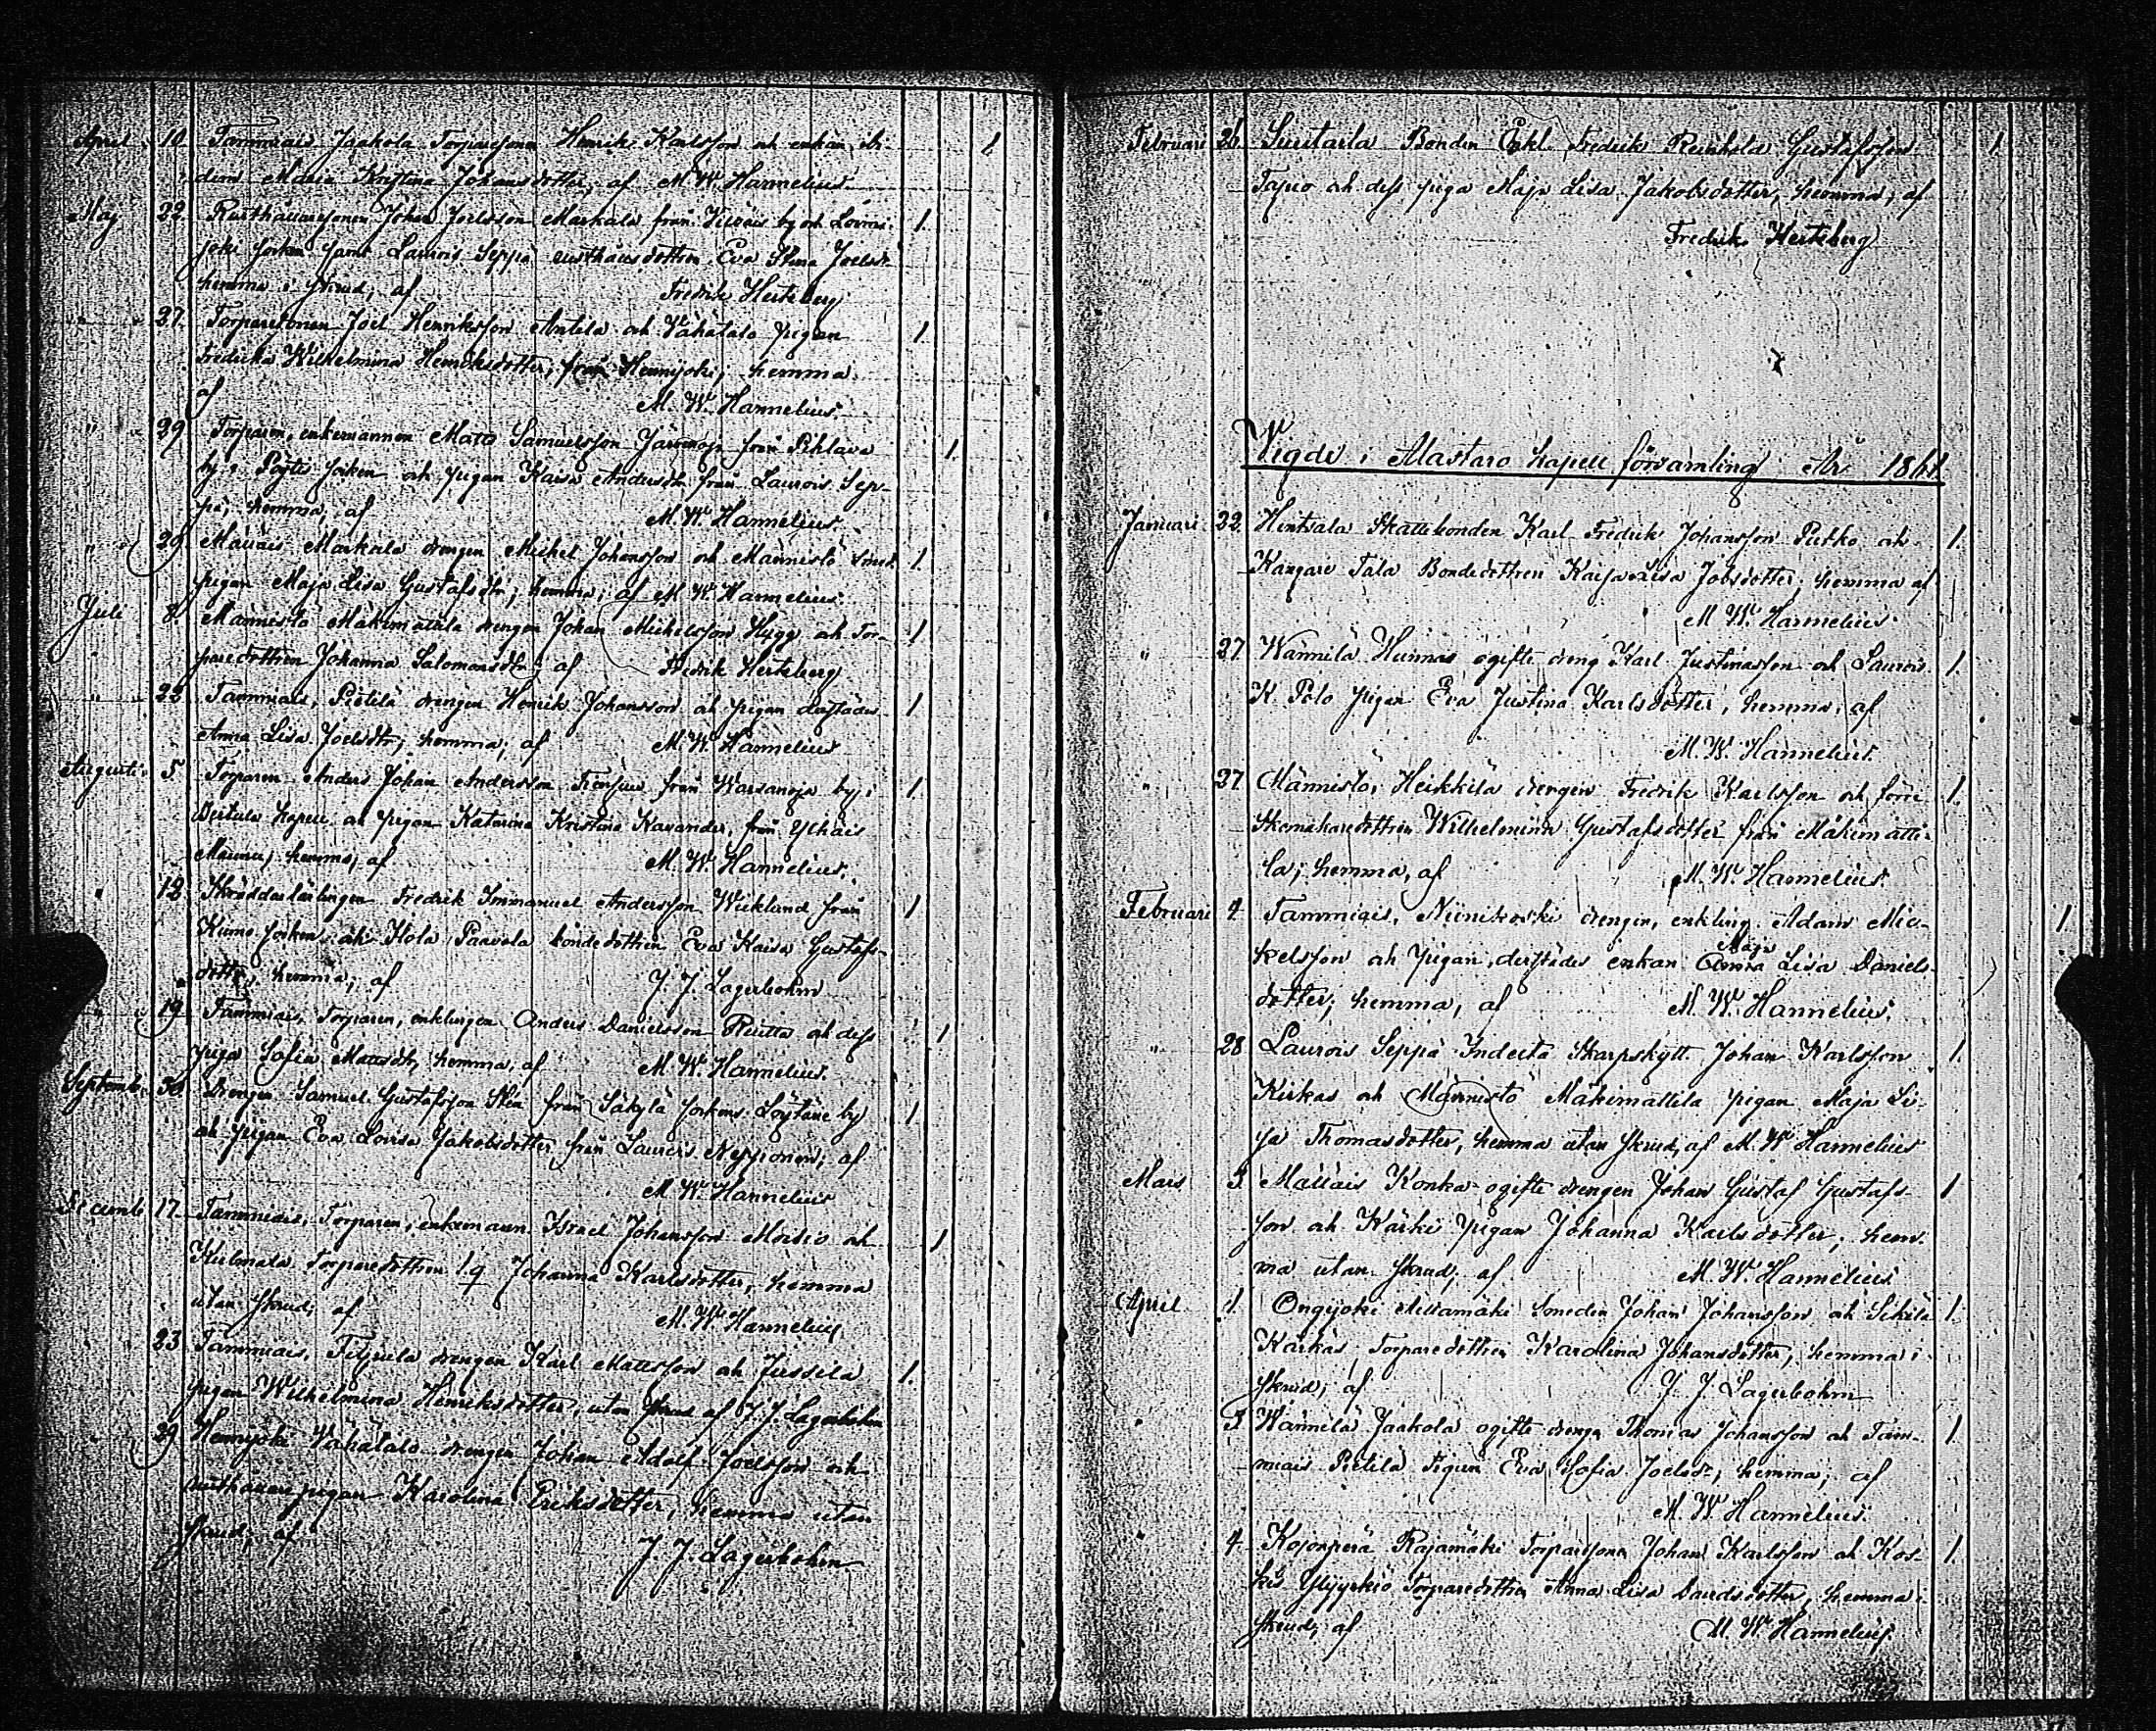 April 10. Tammiais Jaakola Torparesonen Henrik Karlsson och enkan,
Maria Kristina Johansdotter; af M. W. Hannelius
Maj 22. Rusthållaresonen Johan Joelsson Markala från Vilvais by och Loimi-
joki socken samt Laurois Seppä rusthållsdottren Eva Stina Joelsdr
hemma i skrud; af Fredrik Hertzberg
" 27. Torparesonen Joel Henriksson Anttila och Vähätalo pigan
Fredrika Wilhelmina Henriksdotter, från Hennijoki; hemma
af M. W. Hannelius.
" 29 Torparen, enkemannen Matts Samuelsson Järvenoja från Pihlava
by i Pöytis socken och pigan Kaisa Andersdr från Laurois Sep-
pä, hemma, af M. W. Hannelius.
" 29 Mälläis Markula drengen Michel Johansson och Männistö
pigan Maja Lisa Gustafsdtr; hemma; af M. W. Hannelius.
Juli 8. Männistö Mäkimattila drengen Johan Michelsson Hygg och Tor-
paredottren Johanna Salomonsdtr; af Fredrik Hertzberg
" 22 Tammiais, Pietilä drengen Henrik Johansson och pigan derstädes
Anna Lisa Joelsdtr; hemma; af M. W. Hannelius
Augusti 5 Torparen Anders Johan Andersson från Warsanoja by i
kapell och pigan Katarina Kristina Kavander, från Ylhäis
Maunu; hemma; af M. W. Hannelius.
" 12 Skräddarlärlingen Fredrik Immanuel Andersson Wiklund från
Kumo socken och Hola Paavola bondedottren Eva Kaisa Gustafs-
dottr, hemma; af J. J. Lagerbohm
" 19 Tammiais, Torparen, enklingen Anders Danielsson Ruutta och dess
piga Sofia Mattsdtr, hemma, af M. W. Hannelius.
Septemb. 30. Drengen Samuel Gustafsson Sten från Säkylä sockens Löytäne by
och pigan Eva Lovisa Jakobsdotter från Laurois Nepponen; af
M. W. Hannelius
Decemb 17 Tammiais, Torparen, enkemann Israel Johansson Moisio och
Kulmala Torparedottren Johanna Karlsdotter, hemma
utan skrud; af M. W. Hannelius
23 Tammiais, drengen Karl Mattsson och Jussila
pigan Wilhelmina Henriksdotter, utan skrud af J. J. Lagerbohm
" 29 Hennijoki Vähätalo drengen Johan Adolf Joelsson och
rusthållare pigan Karolina Eriksdotter, hemma utan
skrud, af J. J. Lagerbohm
Februari 26. Suutarla Bonden Enkl. Fredrik Reinhold Gustafsson
Tapio och dess piga Maja Lisa Jakobsdotter, hemma; af
Fredrik Hertzberg
Vigde i Mastaro kapell församling År 1861.
Januari 22. Hintsala Skattebonden Karl Fredrik Johansson Putko och
Kangare Tala Bondedottren Kaisa Lisa Jobsdotter; hemma af
M. W. Hannelius.
" 27 Wännilä Hunnas ogifte dreng Karl Justinasson och Laurois
K. Pölo pigan Eva Justina Karlsdotter, hemma, af
M. W. Hannelius.
" 27 Männistö, Heikkilä drengen Fredrik Karlsson och förre
Skomakaredottren Wilhelmina Gustafsdotter från Mäkimatti-
la; hemma, af M. W. Hannelius.
Februari 4 Tammiais, Niinikoski drengen, enkling Adam Mic-
kelsson och pigan, derstädes enkan Anna Maja Lisa Daniels-
dotter; hemma, af M. W. Hannelius.
" 28 Laurois Seppä Indelta Skarpskytt Johan Karlsson
Kirkas och Männistö Mäkimattila pigan Maja Li-
sa Thomasdotter, hemma utan skrud, af M. W. Hannelius
Mars 3. Mälläis Konka ogifte drengen Johan Gustaf Gustafs-
son och Kärki pigan Johanna Karlsdotter; hem-
ma utan skrud, af M. W. Hannelius.
April 1. Ongijoki Alitamäki Smeden Johan Johansson och Sikilä
Kärkäs, Torparedottren Karolina Johansdotter, hemma i
skrud; af J. J. Lagerbohm
" 3 Wännilä Jaakola ogifte drengn Thomas Johansson och Tam-
miais Pietilä Pigan Eva Sofia Joelsdr, hemma; af
M. W. Hannelius.
" 4. Kojonperä Rajamäki Torparesonen Johan Karlsson och Kos-
kis Torparedottren Anna Lisa Davidsdotter, hemma i
skrud, af M. W. Hannelius